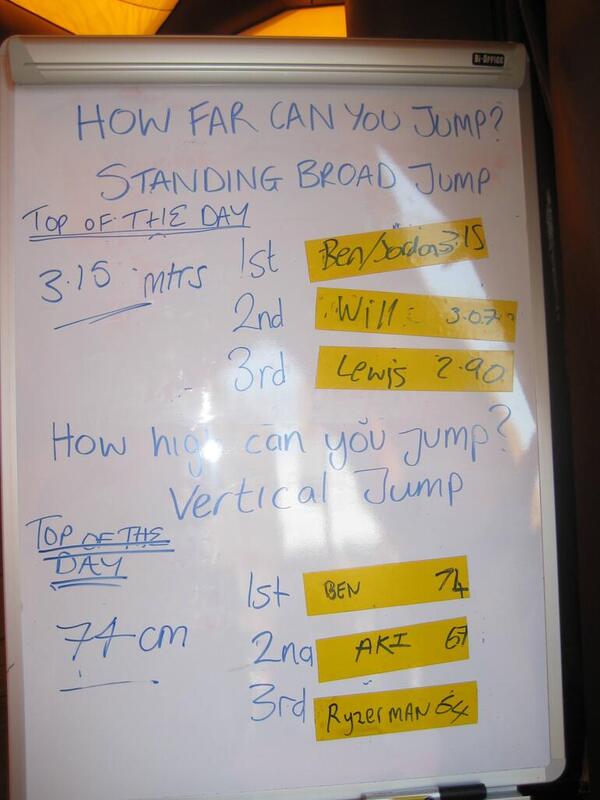 Bi-OFFICE
HOW FAR CAN YOU JUMP?
STANDING BROAD JUMP
TOP OF THE DAY
3.15 mtrs
1st Ben/Jordon 3.15
2nd Will 3.07
3rd Lewis 2.90
How high can you jump?
Vertical Jump
TOP OF THE
DAY
74 cm
1st BEN 74
2nd AKI 67
3rd RyzerMAN 64